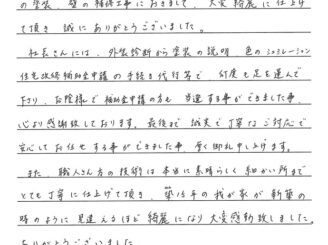 の塗装、壁の補修工事におきまして、大変綺麗に仕上げ
て頂き 誠にありがとうございました。
社長さんには、外装診断から塗装の説明、色のシュミレーション
住宅改修補助金申請の手続き代行等で 何度も足を運んで
下さり、お陰様で補助金申請の方も 当選する事ができました事、
心より感謝致しております。最後まで 誠実で丁寧なご対応で
安心してお任せする事ができました事、厚く御礼申し上げます。
また、職人さん方の技術は本当に素晴らしく細かい所まで
とても丁寧に仕上げて頂き、築15年の我が家が新築の
時のように見違えるほど綺麗になり大変感動致しました。
ありがとうございました